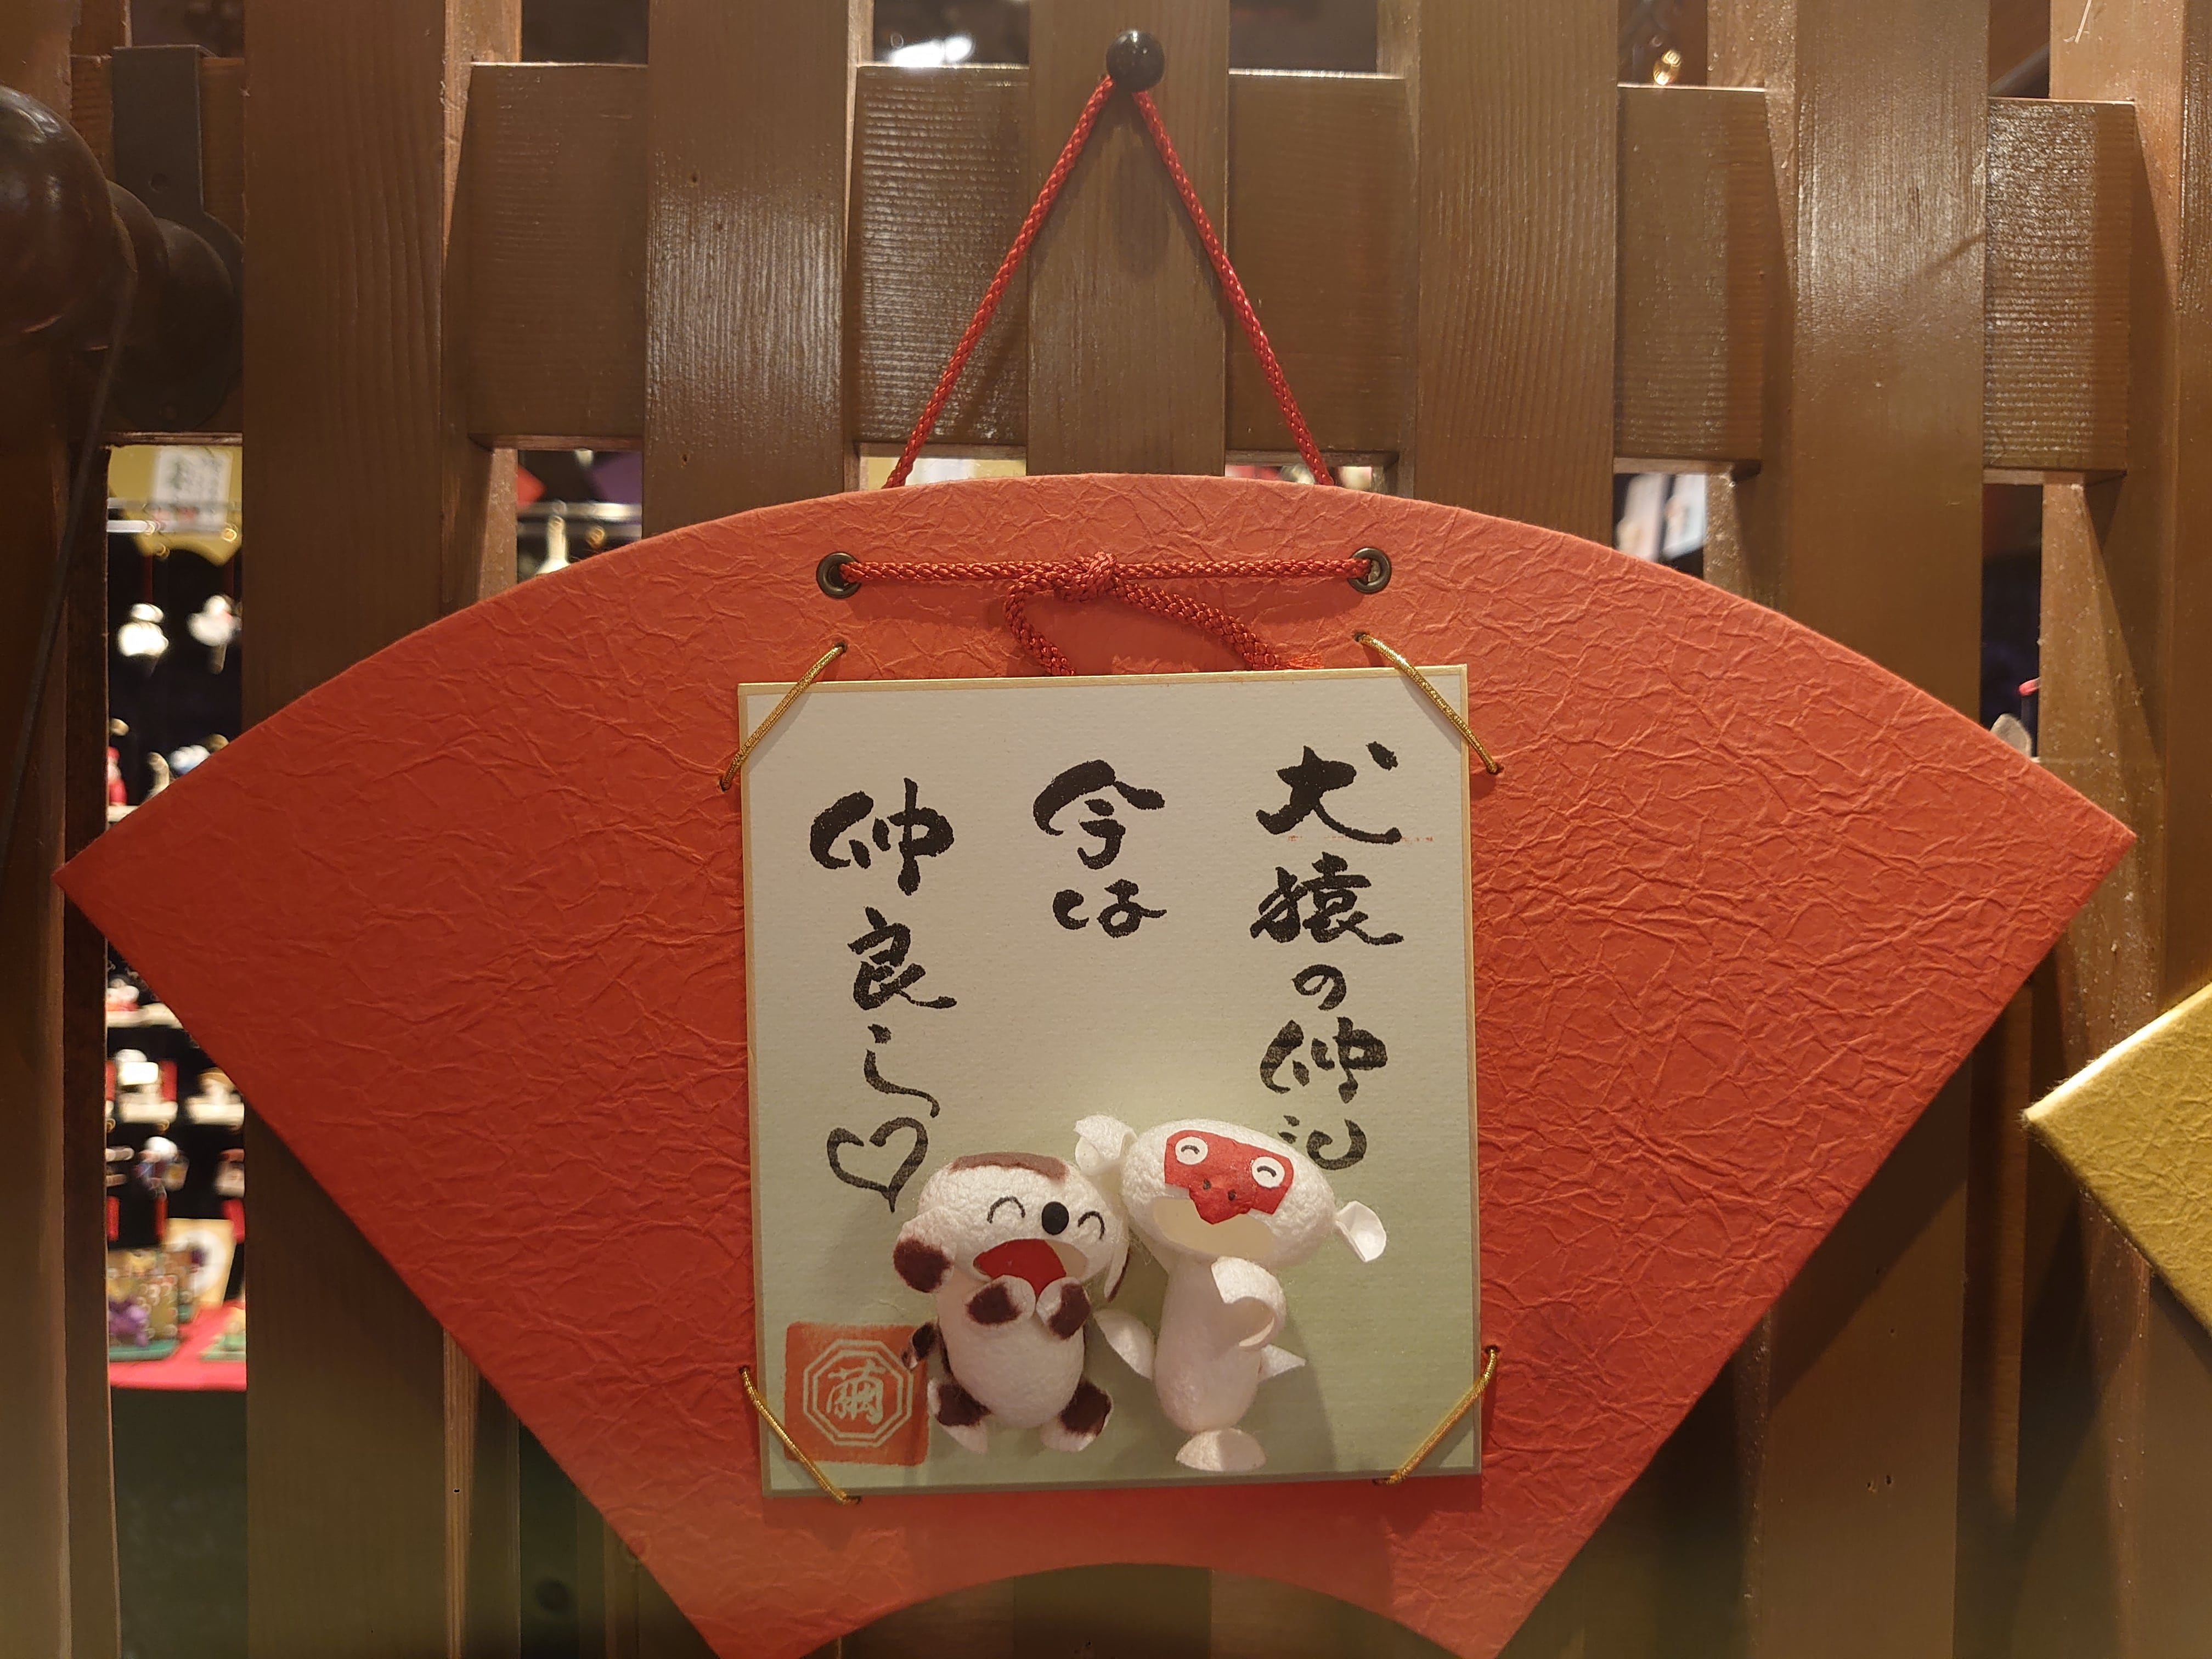 犬猿の仲も
今は
仲良し♡
繭